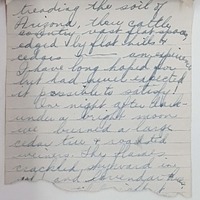 treading the soil of
Arizona, this cattle
country vast first space
edged by flat hills &
cedars
I have long hoped for
but had never expected
it possible to satisfy!
One night, after dark
under a bright moon
we burned a large
cedar tree & roasted
weiners. The flames
crackled skyward in
and lavendar